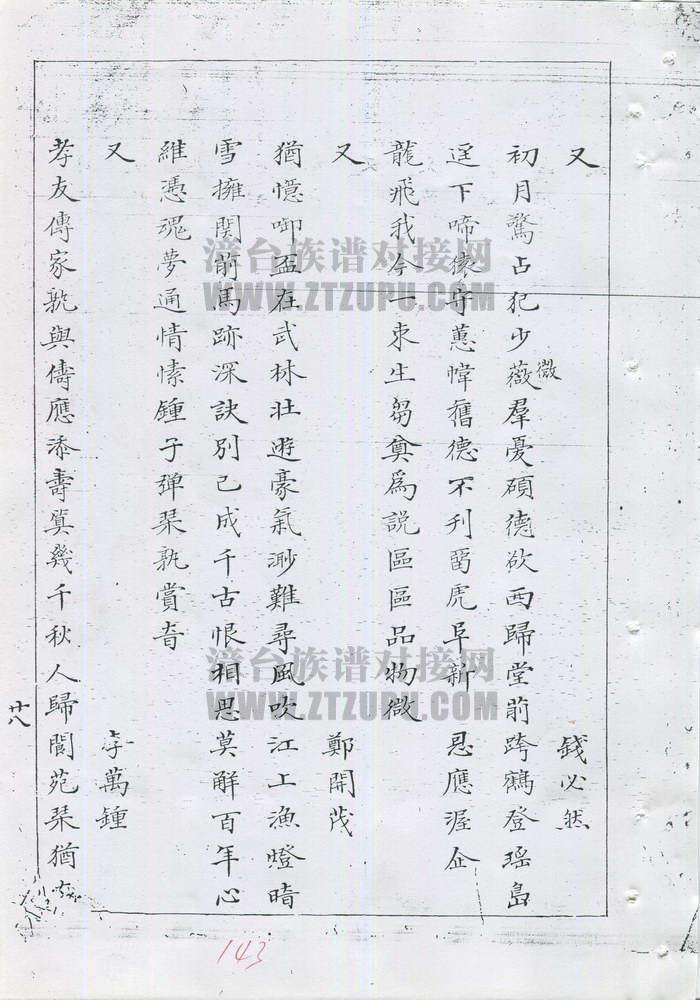 又 錢必然
初月驚占犯少薇羣憂碩德欲西歸堂前跨鶴登瑤島
微
逕下啼猿守蕙幃舊德不刊畱虎阜新 恩應渥企
龍飛我今一束生芻奠為說區區品物微
又 鄭開茂
猶憶啣盃在武林壯遊豪氣渺難尋風吹江工漁燈暗
雪擁関前馬跡深訣別已成千古恨相思莫解百年心
維憑魂夢通情愫鍾子弹琹孰賞音
又 李萬鍾
孝友傳家孰與儔應添壽算幾千秋人歸閬苑琹猶
廿八
143
漳台族谱对接网
WWW.ZTZUPU.COM
漳台族谱对接网
WWW.ZTZUPU.COM